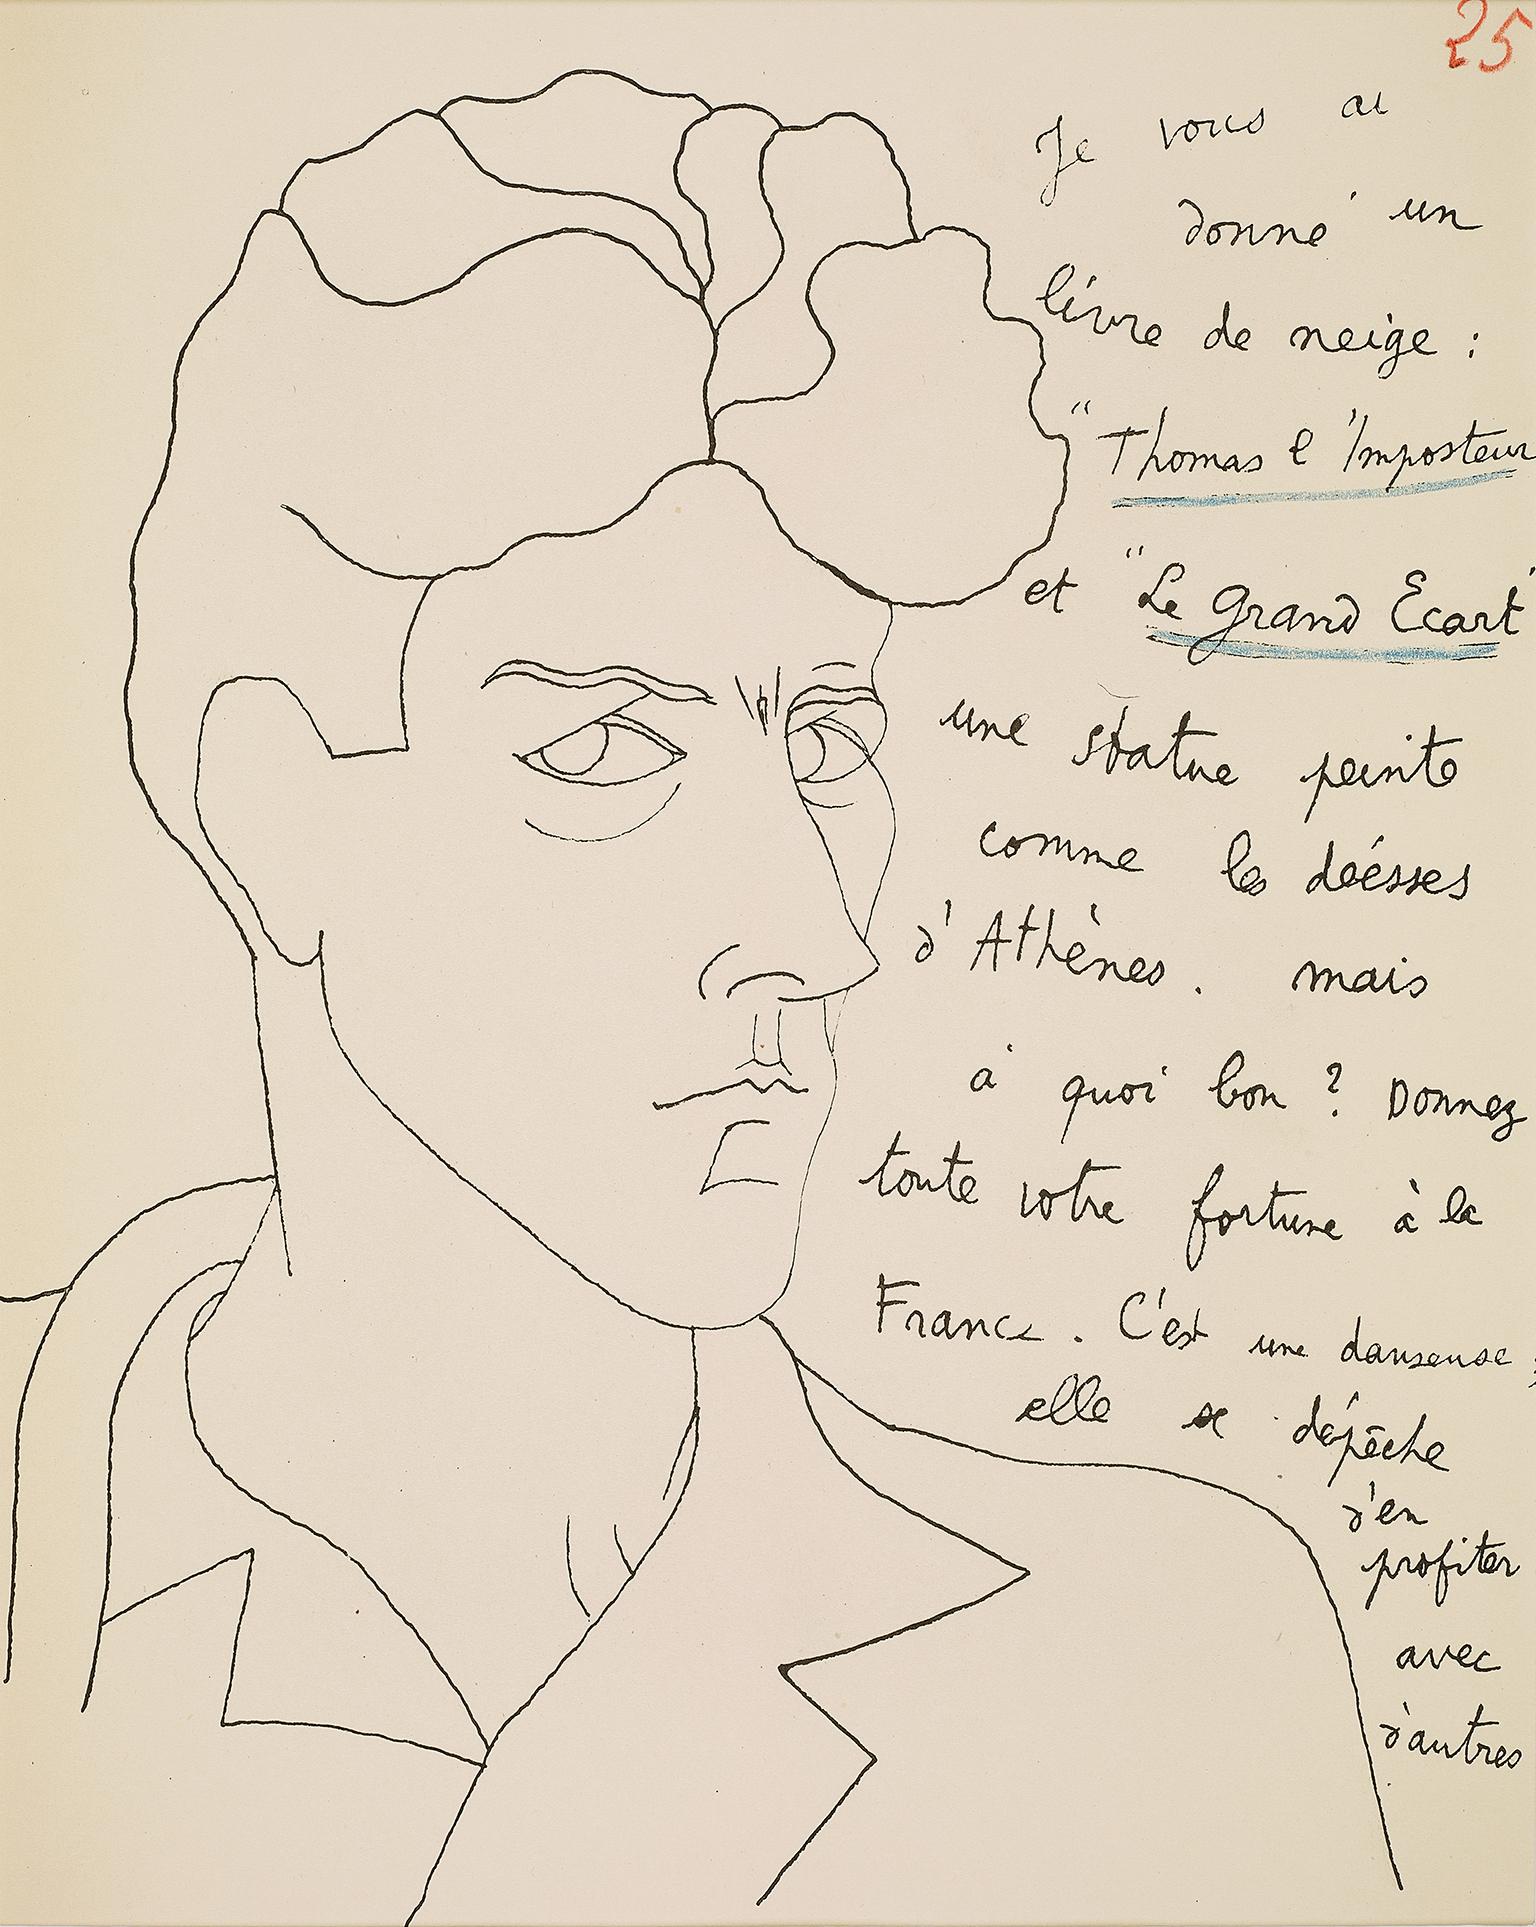 25
Je vous ai
donné un
livre de neige :
"Thomas l'Imposteur
et "Le Grand Ecart"
une statue peinte
comme les déésses
d'Athènes. mais
à quoi bon ? Donnez
toute votre fortune à la
France. C'est une danseuse ;
elle se dépêche
d'en
profiter
avec
d'autres